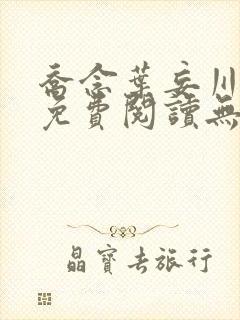 喬念葉妄川
免費閱讀無
晶寶去旅行